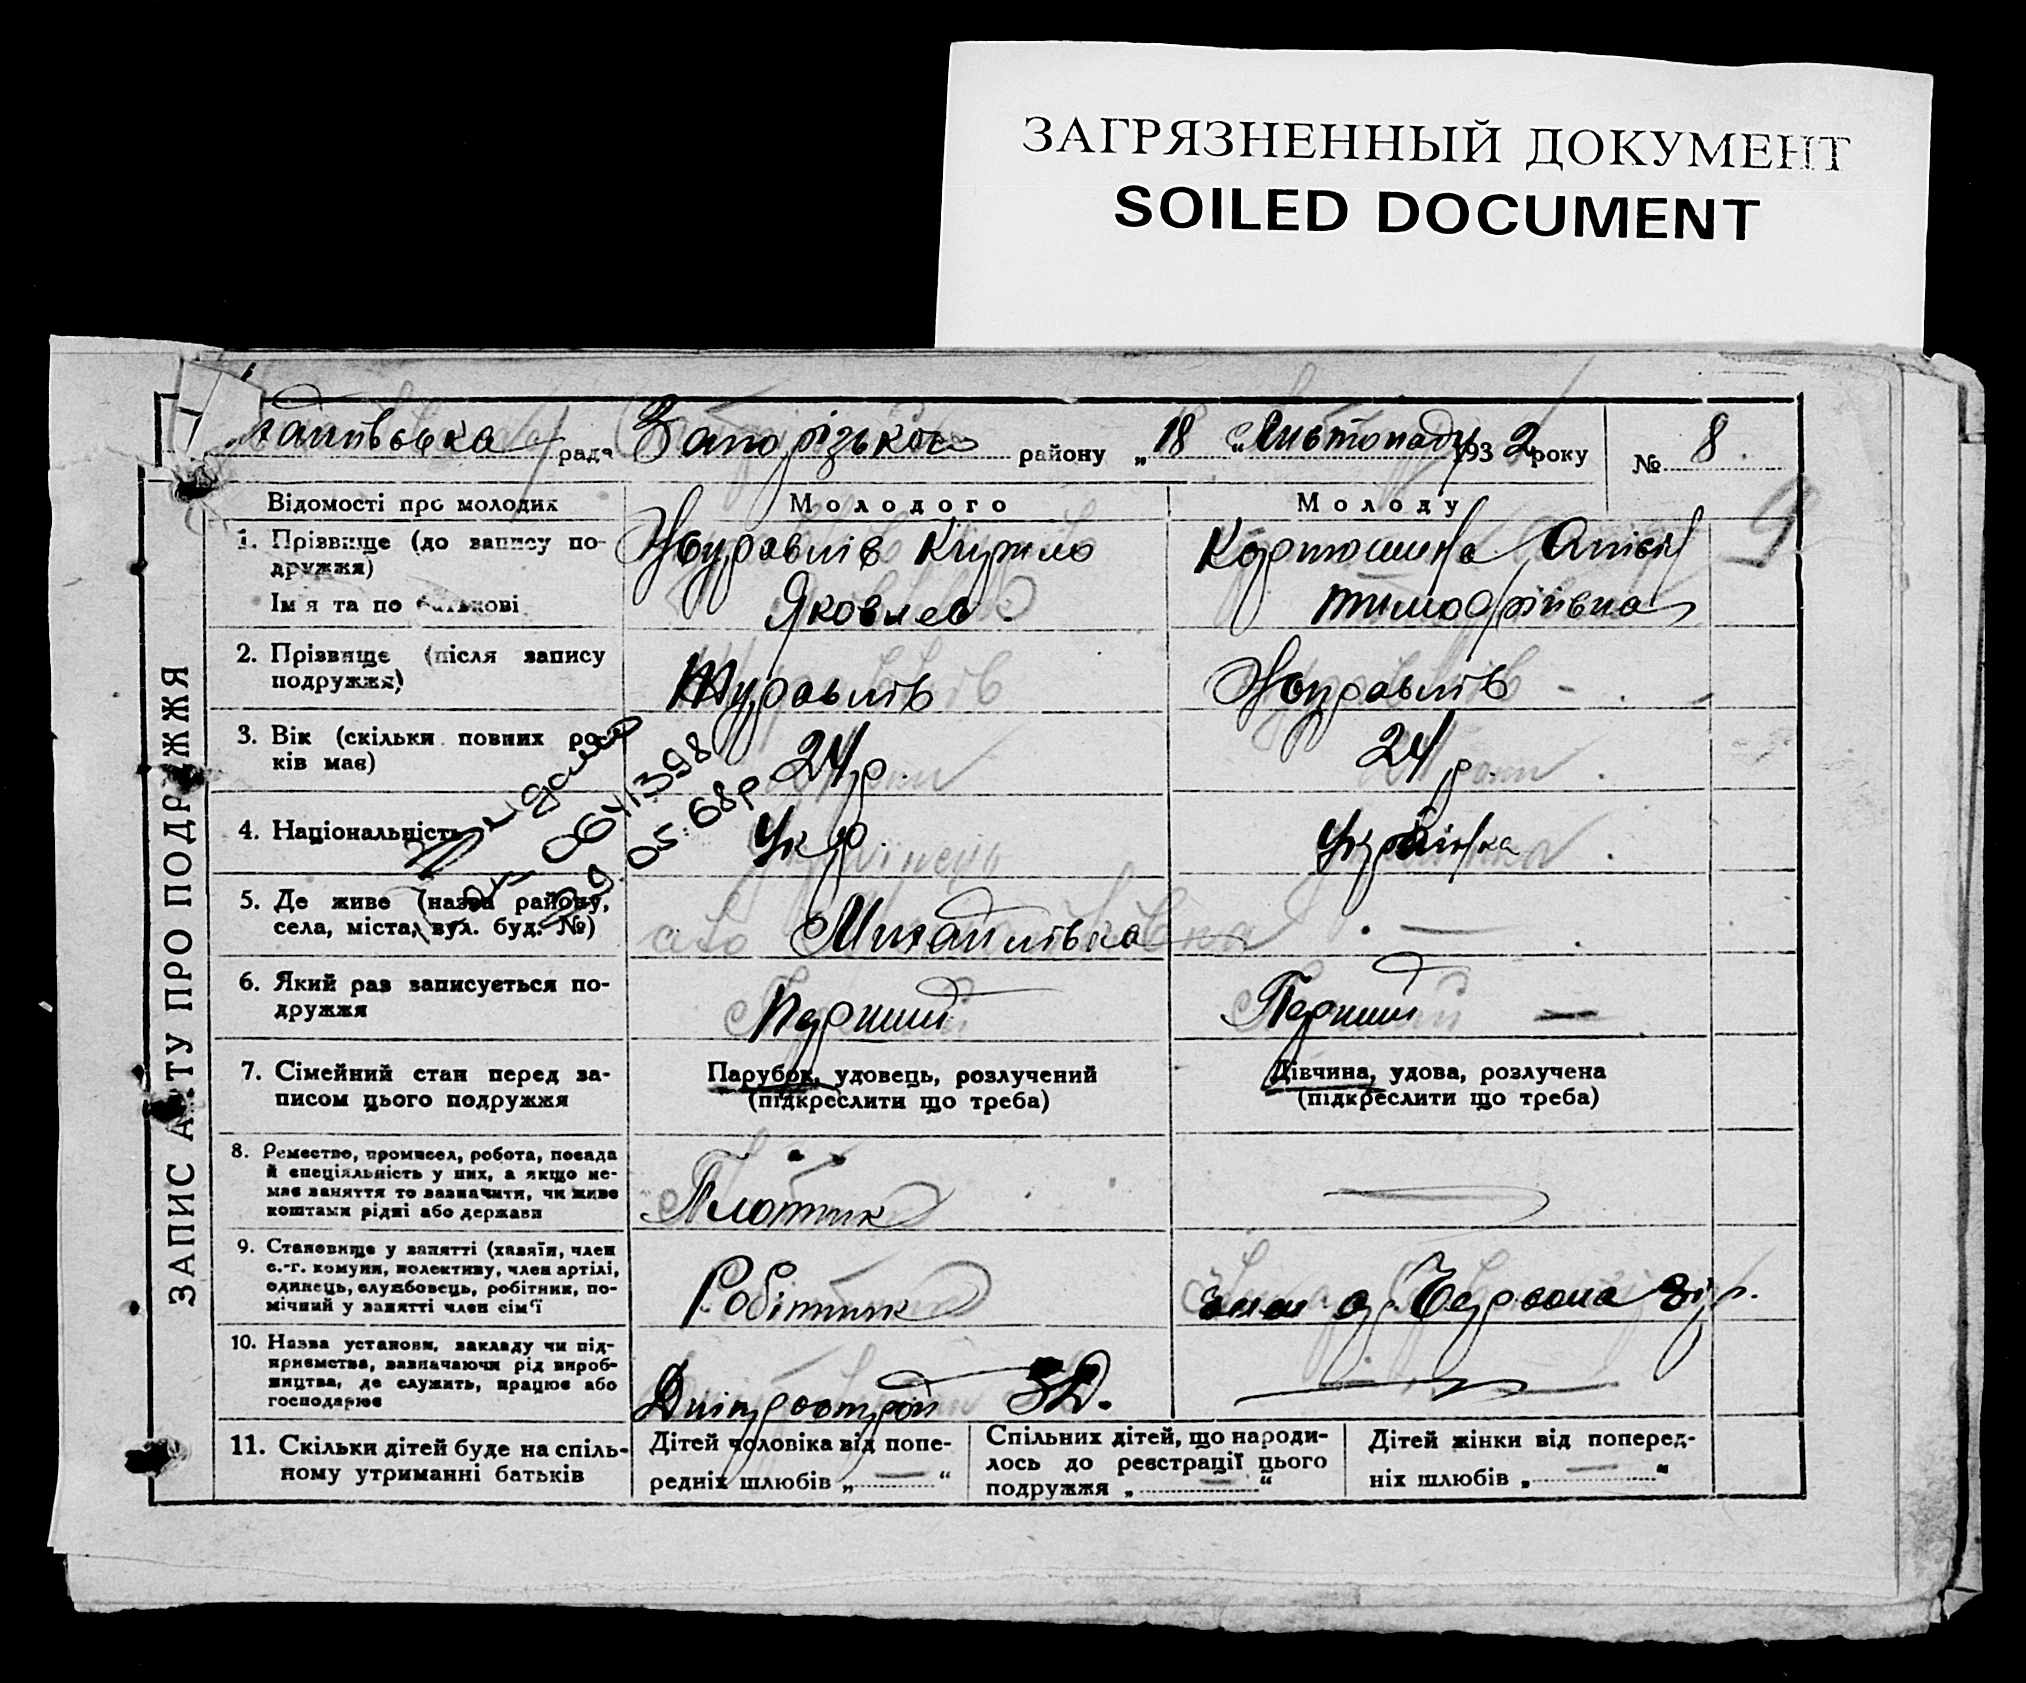 ЗАГРЯЗНЕННЫЙ ДОКУМЕНТ
SOILED DOCUMENT
рада Запорізького району „18 „ Листопаду 1932 року № 8
9
ЗАПИС АКТУ ПРО ПОДРУЖЖЯ
Відомості про молодих
Молодого
Молоду
1. Прізвище (до запису подружжя)
Ім'я та по батькові
Журавлів Кирило
Яковлев.
Картюшина
Тимофіївна
2. Прізвище (після запису
подружжя)
Журавлів
Журавлів
3. Вік (скільки повних ро-
ків має)
24 р.
24 р.
4. Національність
Укр.
Українка
видано
0641398
29.05.68р
5. Де живе (назва району,
села, міста, вул. буд. №)
Михайлівка
—
6. Який раз записується по-
дружжя
Перший
Перший —
7. Сімейний стан перед за-
писом цього подружжя
Парубок, удовець, розлучений
(підкреслити що треба)
Дівчина, удова, розлучена
(підкреслити що треба)
8. Ремество, промисел, робота, посада
й спеціяльність у них, а якщо не-
має заняття то зазначити, чи живе
коштами рідні або держави
Плотник
9. Становище у занятті (хазяїн, член
с.-г. комуни, колективу, член артілі,
одинець, службовець, робітник, по-
мічний у занятті член сім'ї
Робітник
член ар. Червона зір.
10. Назва установи, закладу чи під-
приємства, зазначаючи рід вироб-
ництва, де служить, працює або
господарює
Дніпрострой ЗД.
11. Скільки дітей буде на спіль-
ному утриманні батьків
Дітей чоловіка від попе-
редніх шлюбів „ — “
Спільних дітей, що народи-
лось до реєстрації цього
подружжя „ — “
Дітей жінки від поперед-
ніх шлюбів „ — “